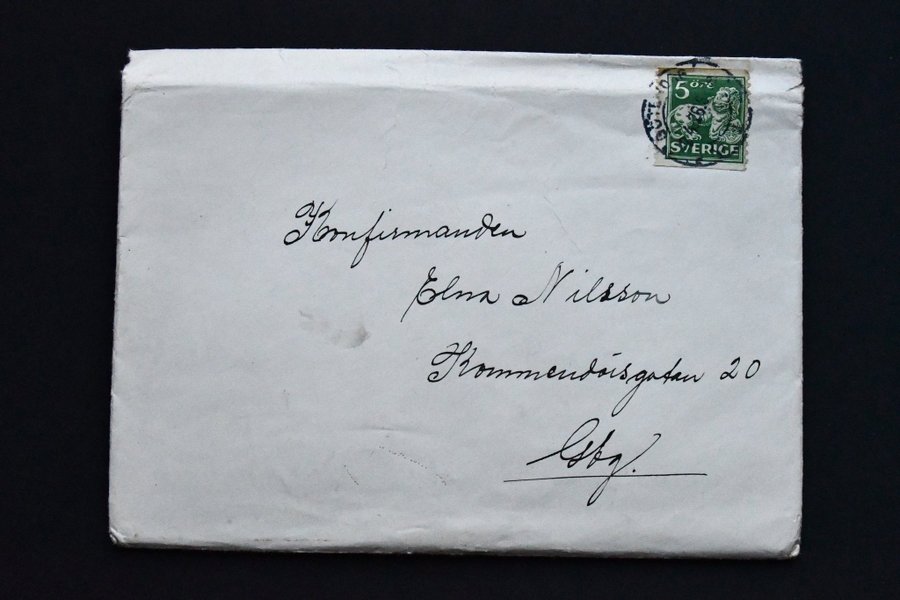 5 öre
SVERIGE
Konfirmanden
Elna Nilsson
Kommendörsgatan 20
Gbg.